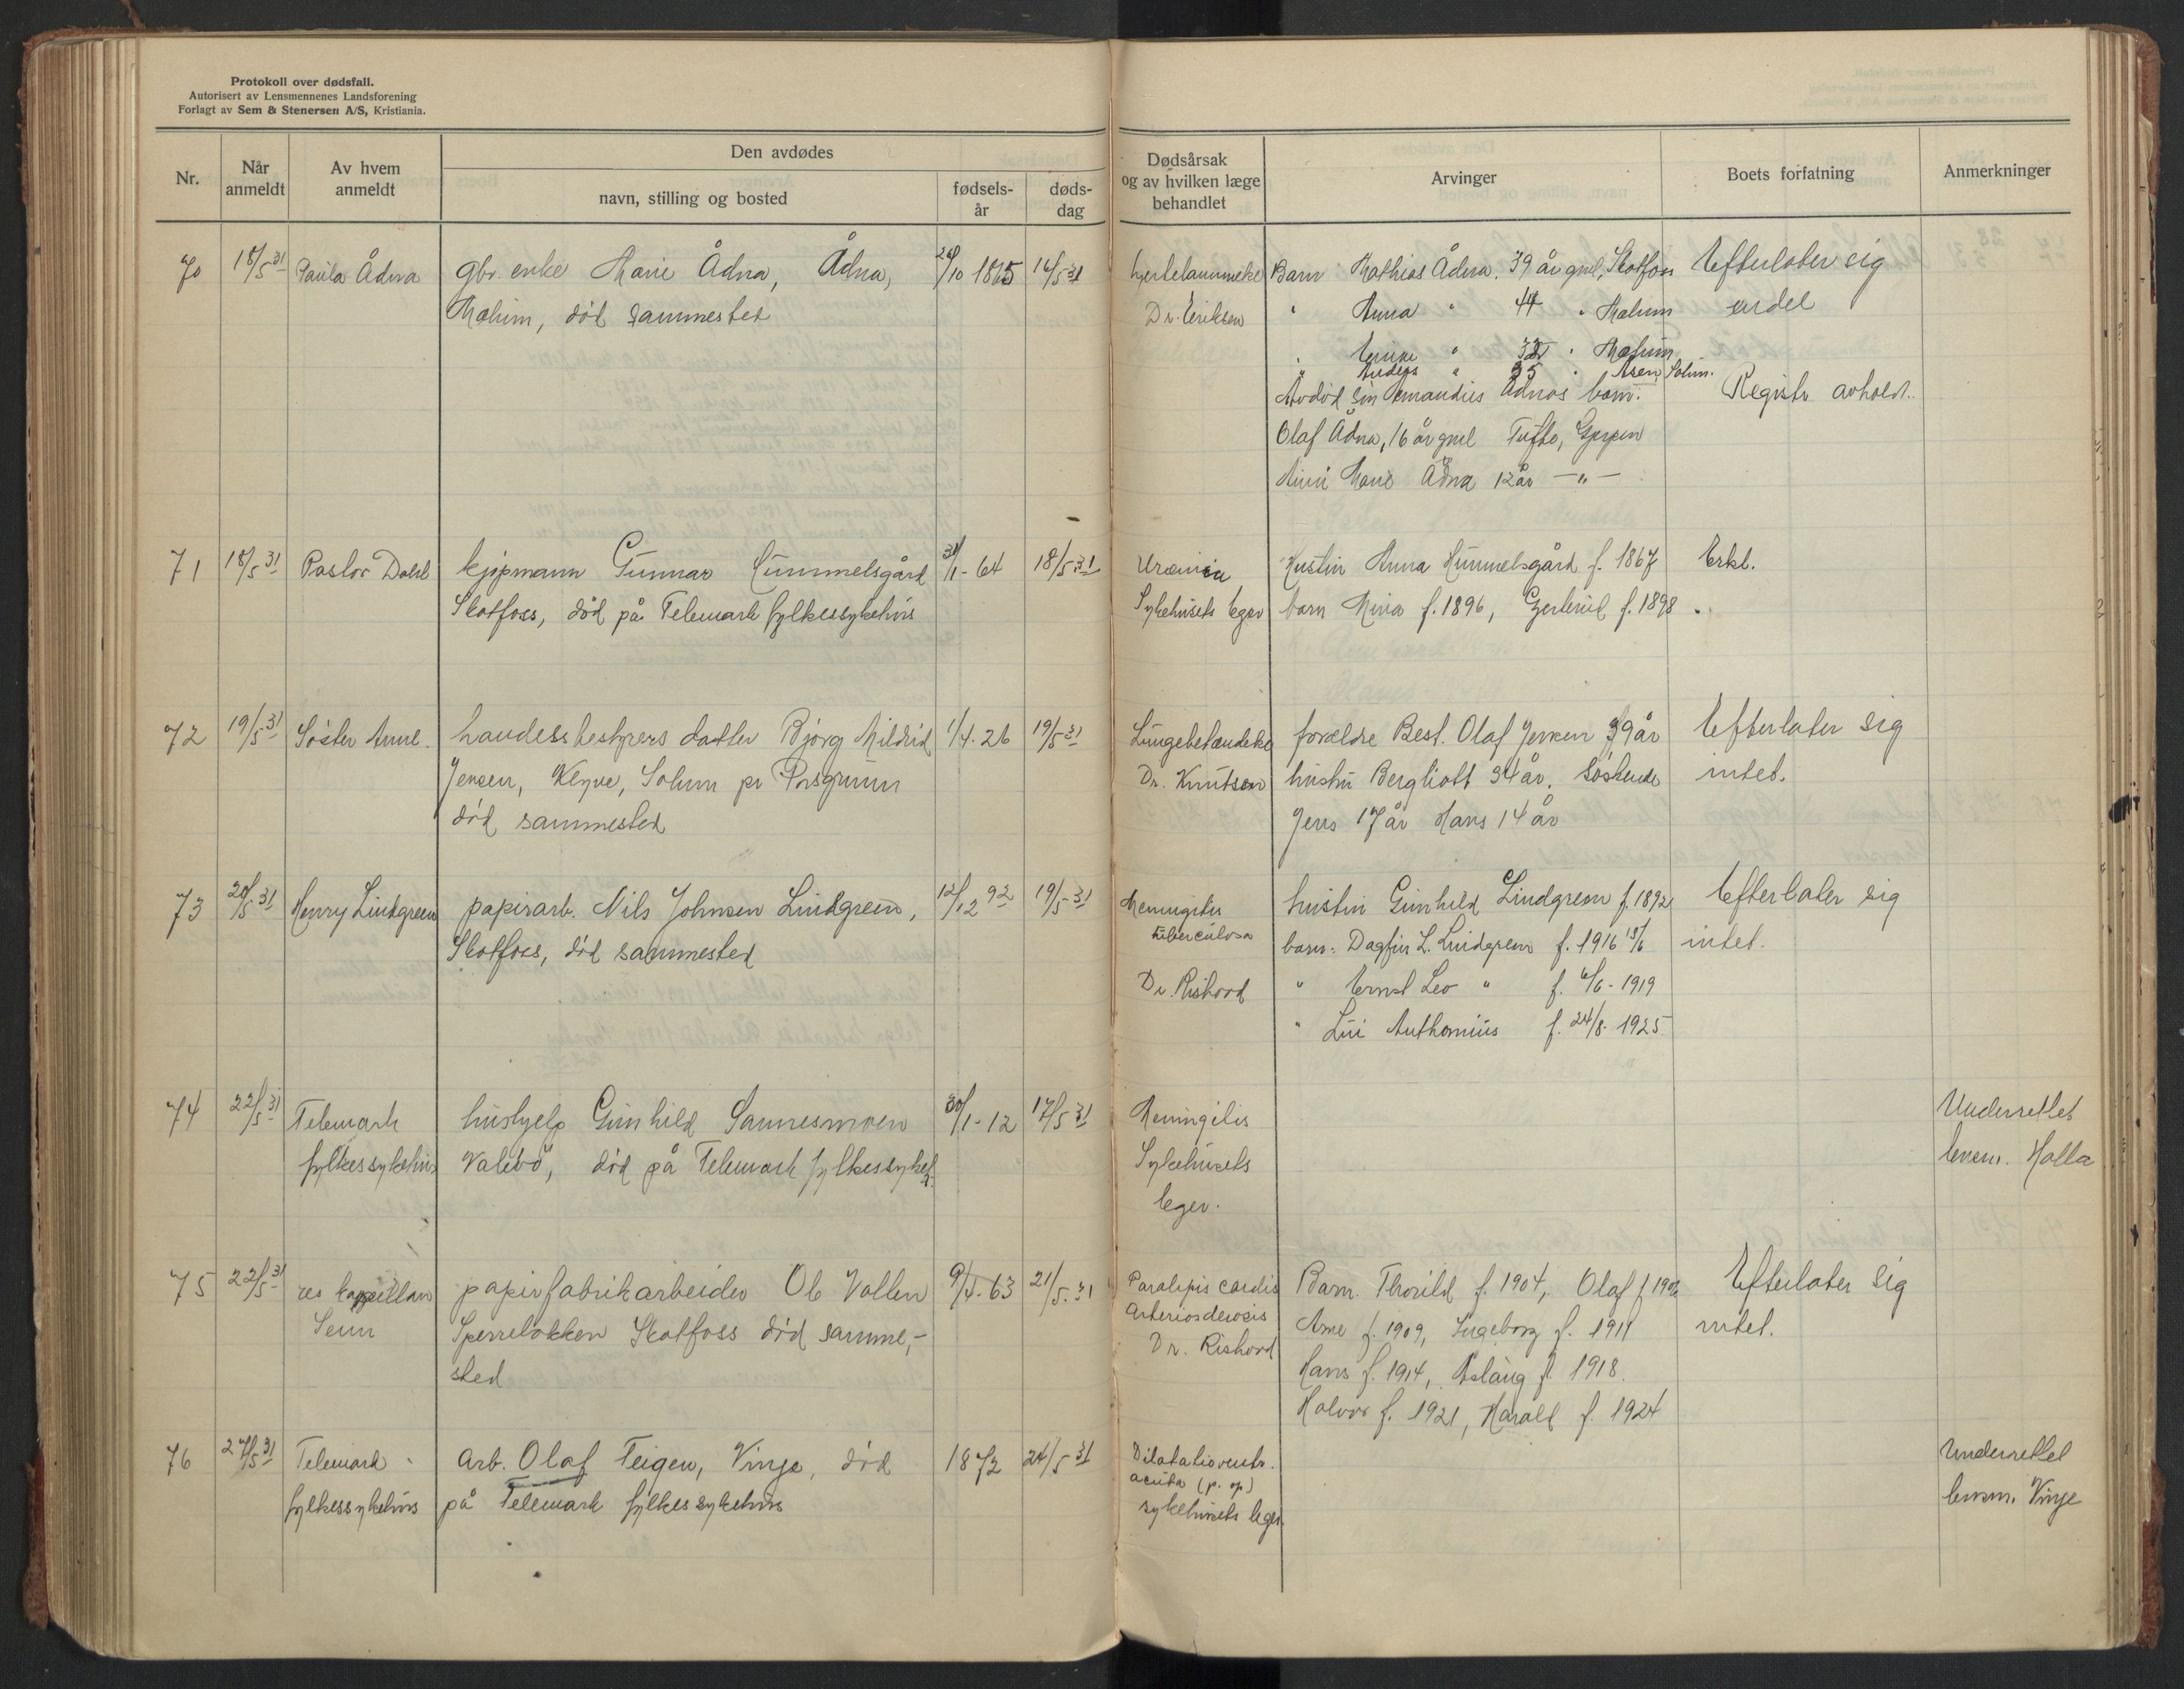 Protokoll over dødsfall.
Autorisert av Lensmennenes Landsforening
Forlagt av Sem & Stenersen A/S, Kristiania.
Nr.
Når anmeldt
Av hvem anmeldt
Den avdødes
navn, stilling og bosted
fødsels-år
døds-dag
Dødsårsak og av hvilken læge behandlet
Arvinger
Boets forfatning
Anmerkninger
70 18/5 31 Paula Ådna gbr. enke Marie Ådna, Ådna, /10 1865 16/5 31 Barn Mathias Ådna 39 år gml, Skotfoss Efterlater sig
Mælum, død sammested Dr. Eriksen " Anna " 44 " Mælum
" " " Mælum
" Anders " 35 " Solum.
Avdød søn Ådnas barn: Registr avholdt.
Olaf Ådna, 16 år gml Tufte, Gjerpen
Marie Ådna 12 år —"—
71 18/5 31 Pastor Dahl kjøpmann Gunnar Hummelsgård 31/1-64 18/5 31 Uræmia Hustru Anna Hummelsgård f. 1867 Erkl.
Skotfoss, død på Telemark fylkessykehus Sykehusets leger barn f. 1896, Gertrud f. 1898.
72 19/5 31 Søster Anne. bestyrers datter Bjørg Mildrid 1/4.26 19/5 31 Lungebetændelse forældre Best. Olaf Jensen 39 år Efterlater sig
Jensen, Klyve, Solum pr Porsgrunn Dr. Knutsen hustru Bergliott 34 år. Søskende intet.
død sammested Jens 17 år Hans 14 år
73 20/5 31 Henry Lindgreen papirarb. Nils Johnsen Lindgreen, 12/12 92 19/5 31 Meningitis hustru Gunhild Lindgreen f. 1892 Efterlater sig
Skotfoss, død sammested tuberculosa barn: Dagfin L. Lindgreen f. 1916 15/6 intet.
Dr. Rishovd " Ernst Leo " f. 6/6-1919
" Anthonius f. 24/8-1925
74 22/5 31 Telemark hushjelp Gunhild Sannesmoen 30/1-12 17/5 31 Meningitis Underrettet
fylkessykehus Valebø, død på Telemark fylkessykeh. Sykehusets lensm. Holla
leger.
75 22/5 31 res kapellan papirfabrikarbeider Ole Vollen 9/4-63 21/5.31 Paralysis cordis Barn. Thorild f. 1904, Olaf f. 1906 Efterlater sig
Senn Sperreløkken Skotfoss død samme- Arteriosclerosis Arne f. 1909, Ingeborg f. 1911 intet.
sted Dr. Rishovd Hans f. 1914, Aslaug f. 1918.
Halvor f. 1921, Harald f. 1924
76 27/5 31 Telemark arb. Olaf Teigen, Vinje, død 1872 24/5 31 Dilatatio ventr. Underrettet
fylkessykehus på Telemark fylkessykehus acuta (p. op.) lensm. Vinje
sykehusets leger.